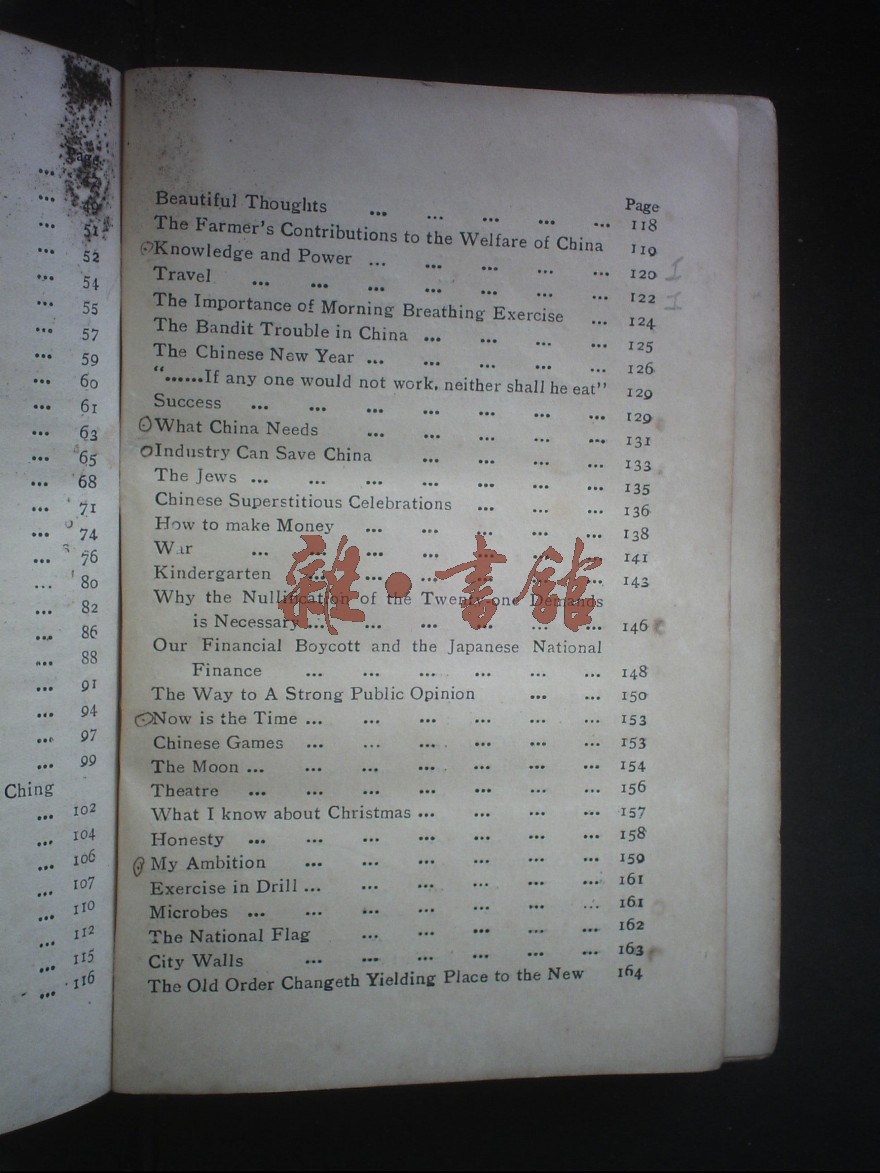 Page
51
52
54
55
57
59
60
61
63
65
68
71
74
76
80
82
86
88
91
94
97
99
Ching
102
104
106
107
110
112
115
116
Page
Beautiful Thoughts ... ... ... ... ... 118
The Farmer's Contributions to the Welfare of China 119
Knowledge and Power ... ... ... ... ... 120 I
Travel ... ... ... ... ... ... ... 122 I
The Importance of Morning Breathing Exercise ... 124
The Bandit Trouble in China ... ... ... ... 125
The Chinese New Year ... ... ... ... ... 126
"......If any one would not work, neither shall he eat" 129
Success ... ... ... ... ... ... ... 129
What China Needs ... ... ... ... ... 131
Industry Can Save China ... ... ... ... 133
The Jews ... ... ... ... ... ... ... 135
Chinese Superstitious Celebrations ... ... ... 136
How to make Money ... ... ... ... ... 138
War ... ... ... ... ... ... ... 141
Kindergarten ... ... ... ... ... ... 143
Why the Nullification of the Twenty-one Demands
is Necessary ... ... ... ... ... ... 146
Our Financial Boycott and the Japanese National
Finance ... ... ... ... ... ... 148
The Way to A Strong Public Opinion ... ... 150
Now is the Time ... ... ... ... ... ... 153
Chinese Games ... ... ... ... ... ... 153
The Moon ... ... ... ... ... ... ... 154
Theatre ... ... ... ... ... ... ... 156
What I know about Christmas ... ... ... ... 157
Honesty ... ... ... ... ... ... ... 158
My Ambition ... ... ... ... ... ... 159
Exercise in Drill ... ... ... ... ... ... 161
Microbes ... ... ... ... ... ... ... 161
The National Flag ... ... ... ... ... 162
City Walls ... ... ... ... ... ... 163
The Old Order Changeth Yielding Place to the New 164
雜·書館